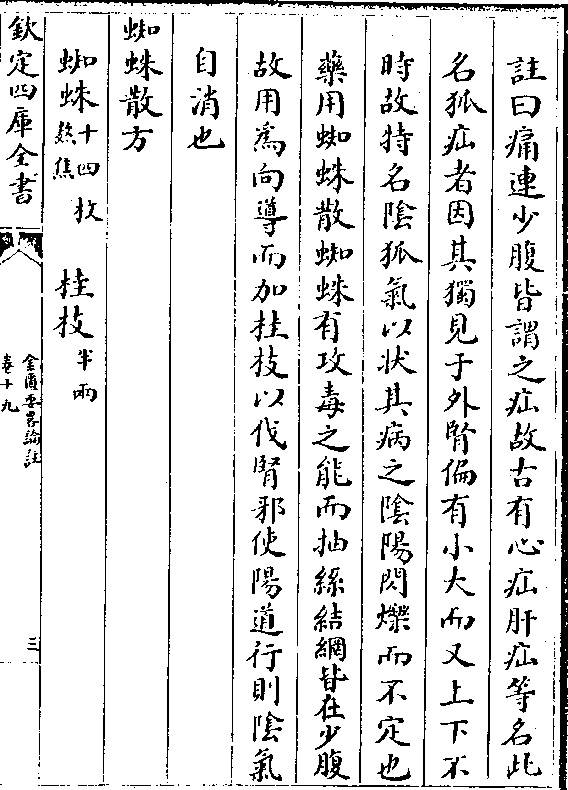 註曰痛連少腹皆謂之疝故古有心疝肝疝等名此
名狐疝者因其獨見于外腎偏有小大而又上下不
時故特名陰狐氣以狀其病之陰陽閃爍而不定也
藥用蜘蛛散蜘蛛有攻毒之能而抽絲結網皆在少腹
故用為向導而加桂枝以伐腎邪使陽道行則陰氣
自消也
蜘蛛散方
蜘蛛十四枚熬焦 桂枝半兩
欽定四庫全書
金匱要畧論註
卷十九
三